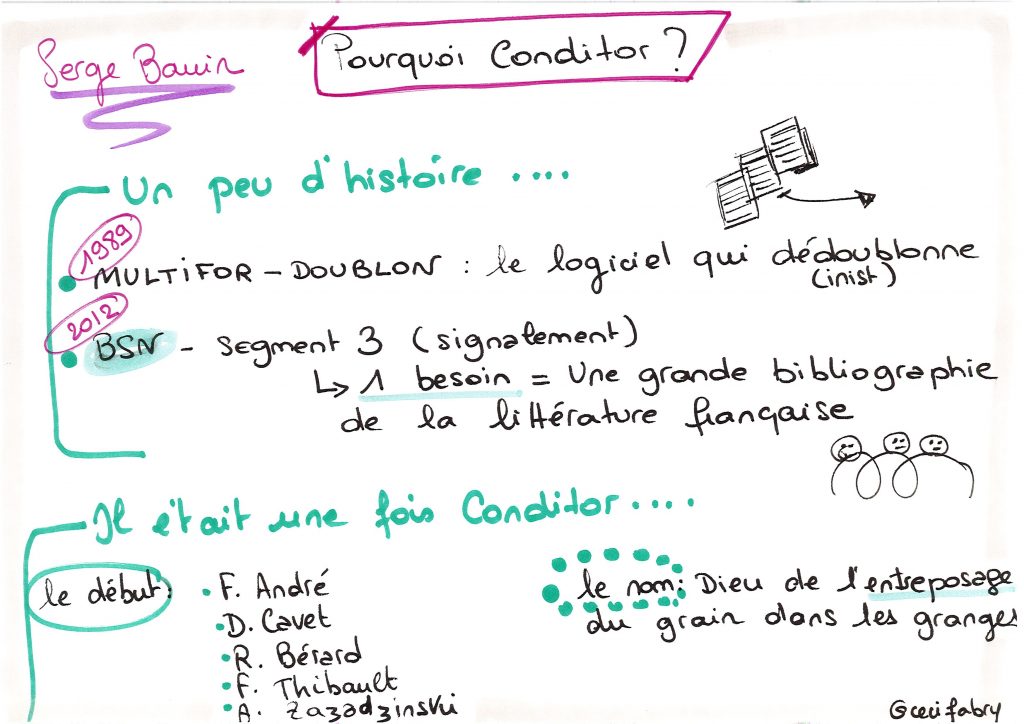 Serge Bauin
Pourquoi Conditor ?
Un peu d'histoire ....
1989
MULTIFOR - DOUBLON : le logiciel qui dédoublonne
(inist)
2012
BSN - segment 3 (signalement)
↳ 1 besoin = Une grande bibliographie
de la littérature française
Il était une fois Conditor....
le début :
• F. André
• D. Cavet
• R. Bérard
• F. Thibault
• A. Zazadzinski
le nom : Dieu de l'entreposage
du grain dans les granges
@cecifabry